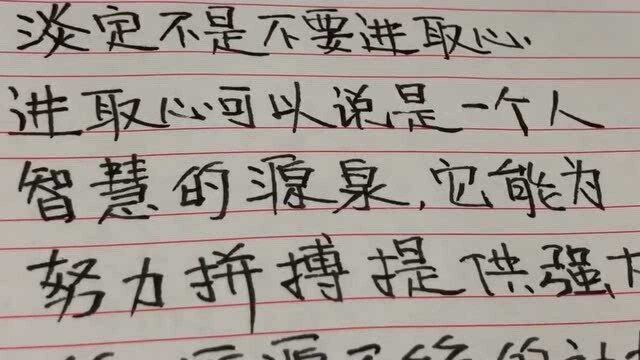 淡定不是不要进取心.
进取心可以说是一个人
智慧的源泉,它能为
努力拼搏提供强